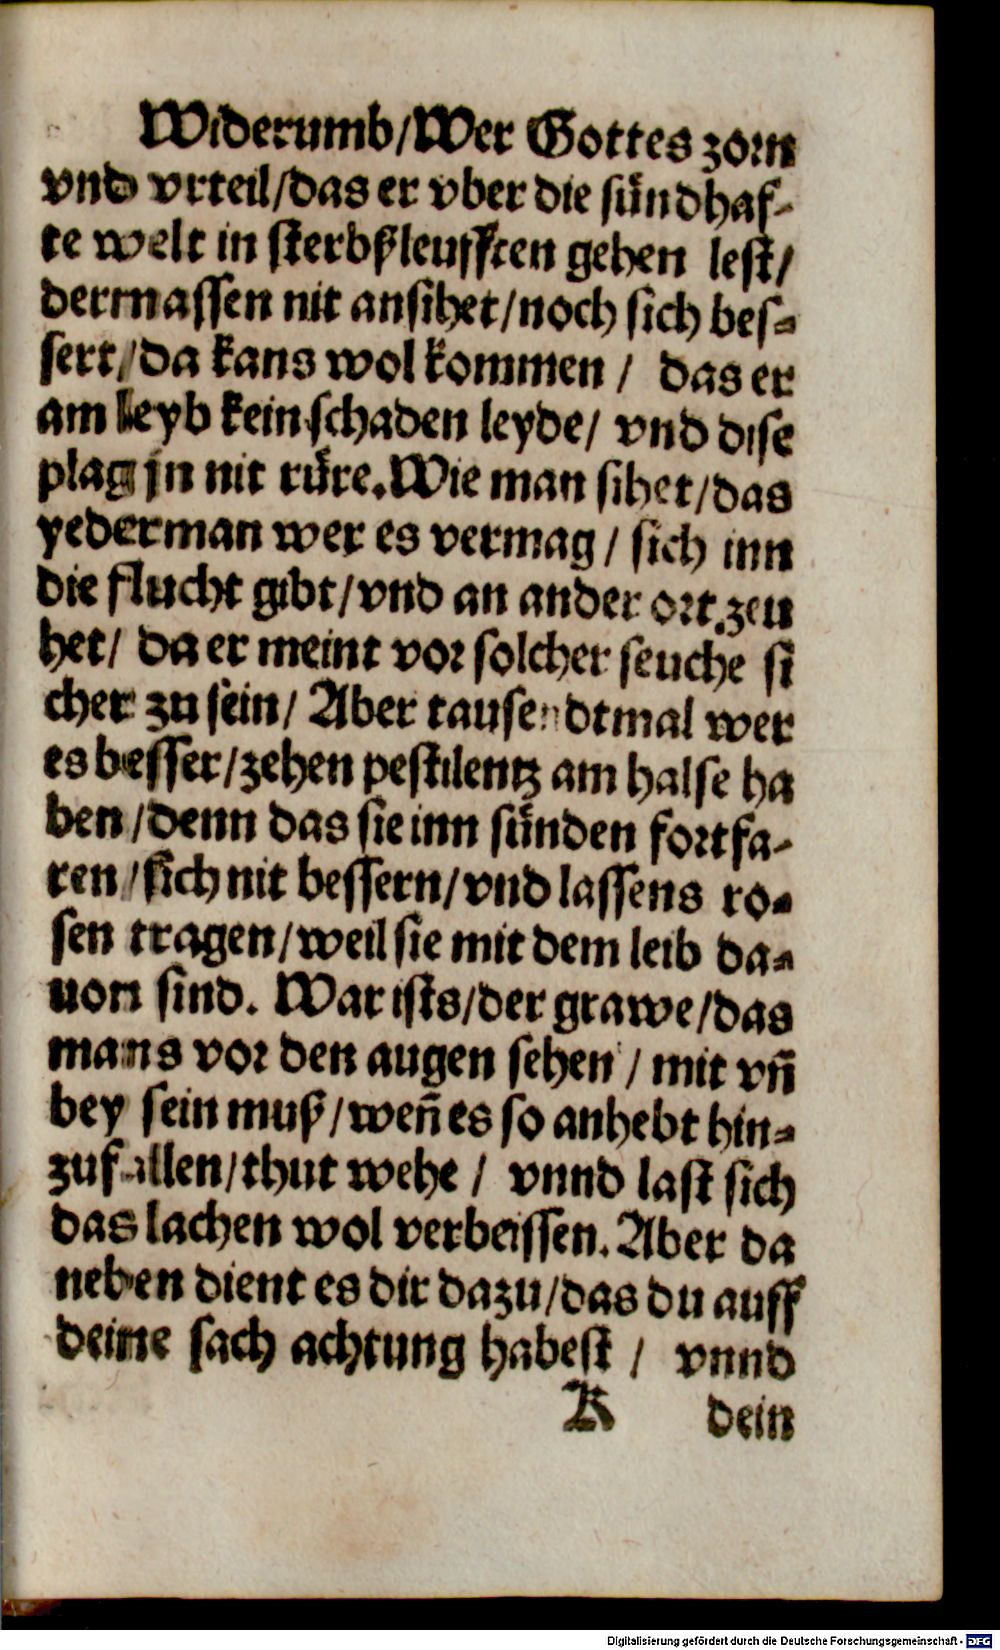 Widerumb/Wer Gottes zorn
vnd vrteil/das er vber die sündhaf-
te welt in sterbßleufften gehen lest/
dermassen nit ansihet/noch sich bes-
sert/da kans wol kommen / das er
am leyb kein schaden leyde/ vnd dise
plag jn nit rüre. Wie man sihet/das
yederman wer es vermag / sich inn
die flucht gibt/vnd an ander ort zeu
het/ da er meint vor solcher seuche si
cher zu sein/ Aber tausendtmal wer
es besser/zehen pestilentz am halse ha
ben/denn das sie inn sünden fortfa-
ren/sich nit bessern/vnd lassens ro-
sen tragen/weil sie mit dem leib da-
uon sind. War ists/der grawe/das
mans vor den augen sehen / mit vñ
bey sein muß/weñ es so anhebt hin-
zufallen/thut wehe / vnnd last sich
das lachen wol verbeissen. Aber da
neben dient es dir dazu/das du auff
deine sach achtung habest / vnnd
K dein
Digitalisierung gefördert durch die Deutsche Forschungsgemeinschaft - DFG